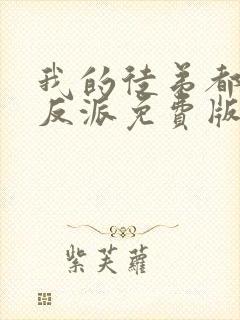 我的徒弟都
反派免費版
紫芙蘿